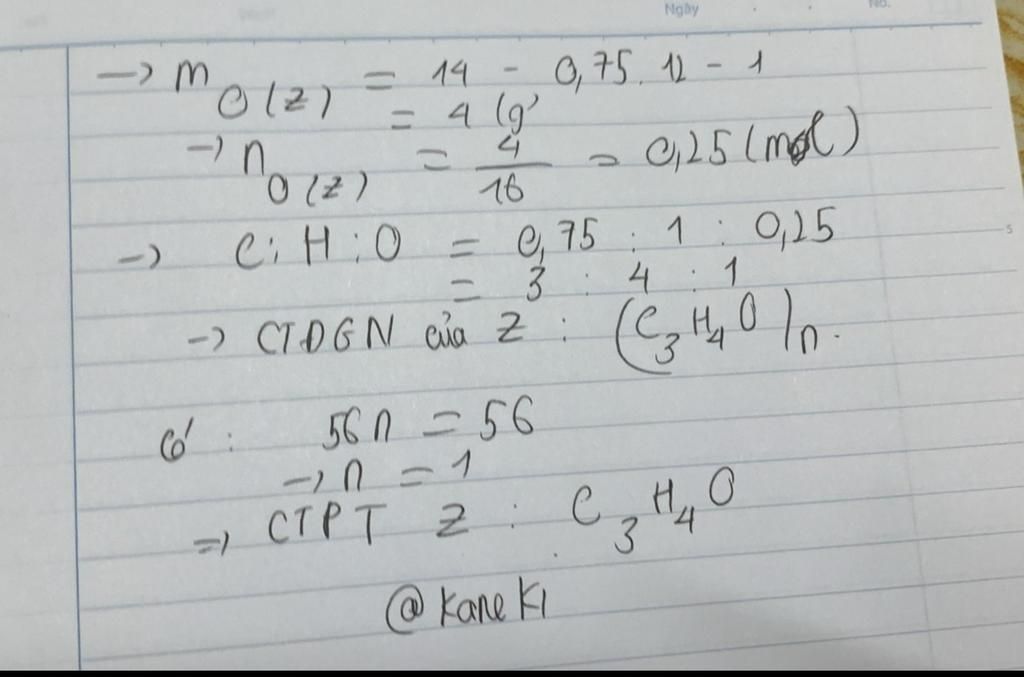 Ngày No.
→ m O(Z) = 14 - 0,75.12 - 1
= 4 (g)
→ n O(Z) = 4/16 = 0,25 (mol)
→ C:H:O = 0,75 : 1 : 0,25
= 3 : 4 : 1
→ CTDGN của Z : (C3H4O)n.
Có : 56n = 56
→ n = 1
⇒ CTPT Z : C3H4O
@KaneKI